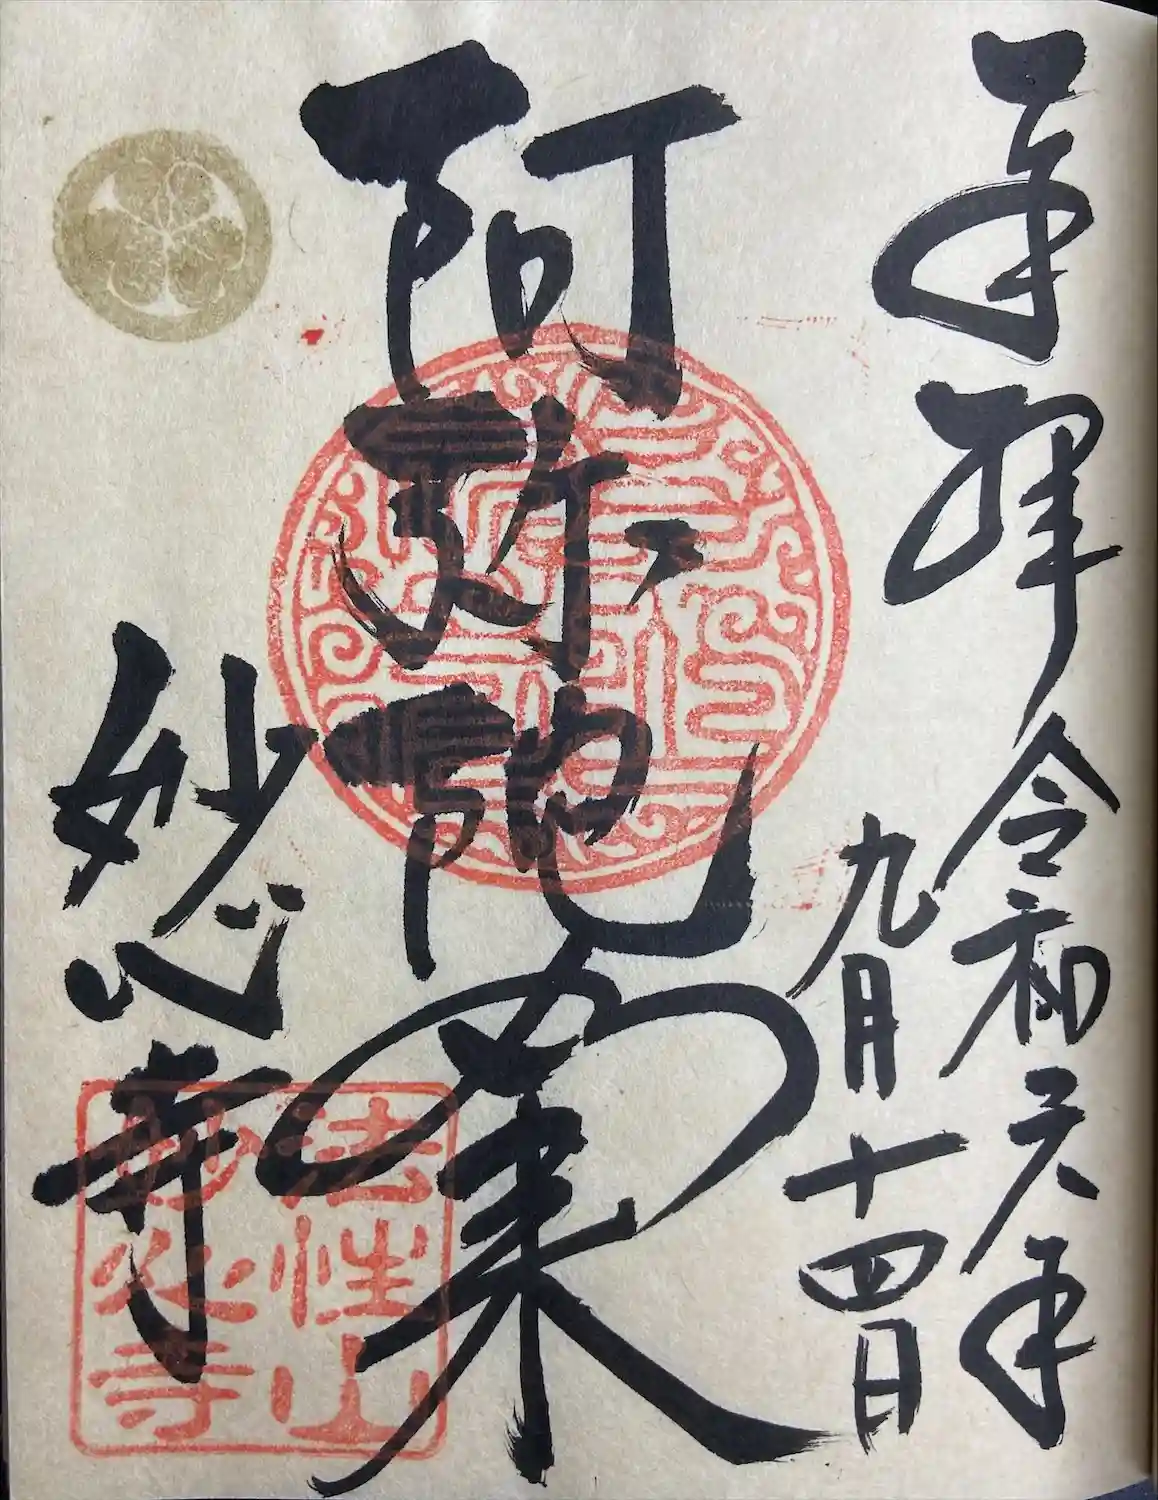 奉拝 令和六年
九月十四日
阿弥陀如来
妙心寺
法性山
妙心寺